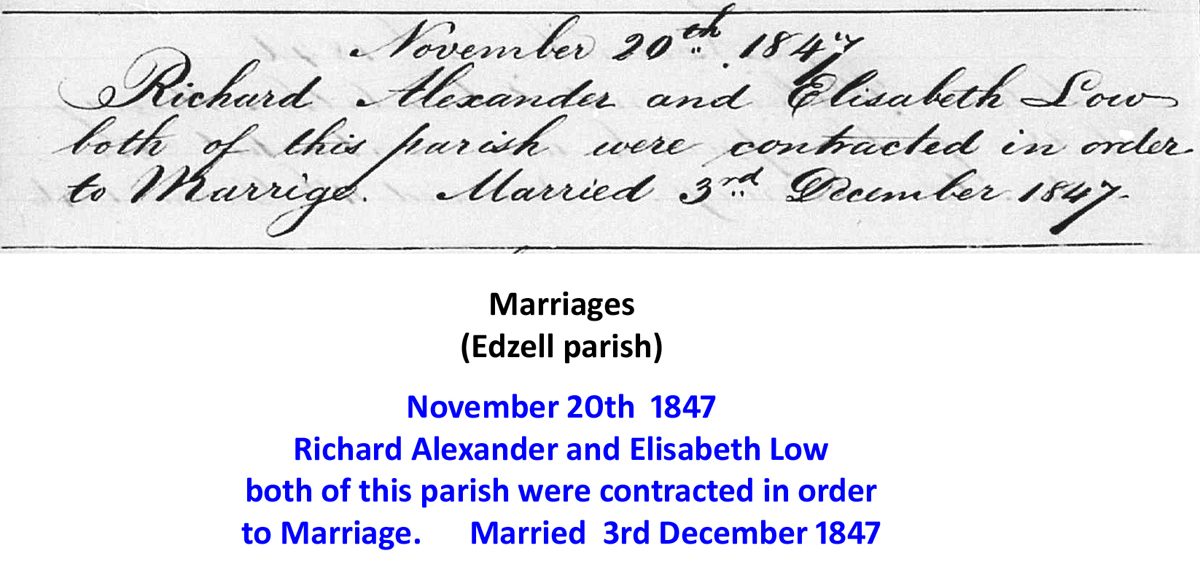 November 20th. 1847
Richard Alexander and Elisabeth Low
both of this parish were contracted in order
to Marrige. Married 3rd December 1847-
Marriages
(Edzell parish)
November 20th 1847
Richard Alexander and Elisabeth Low
both of this parish were contracted in order
to Marriage. Married 3rd December 1847